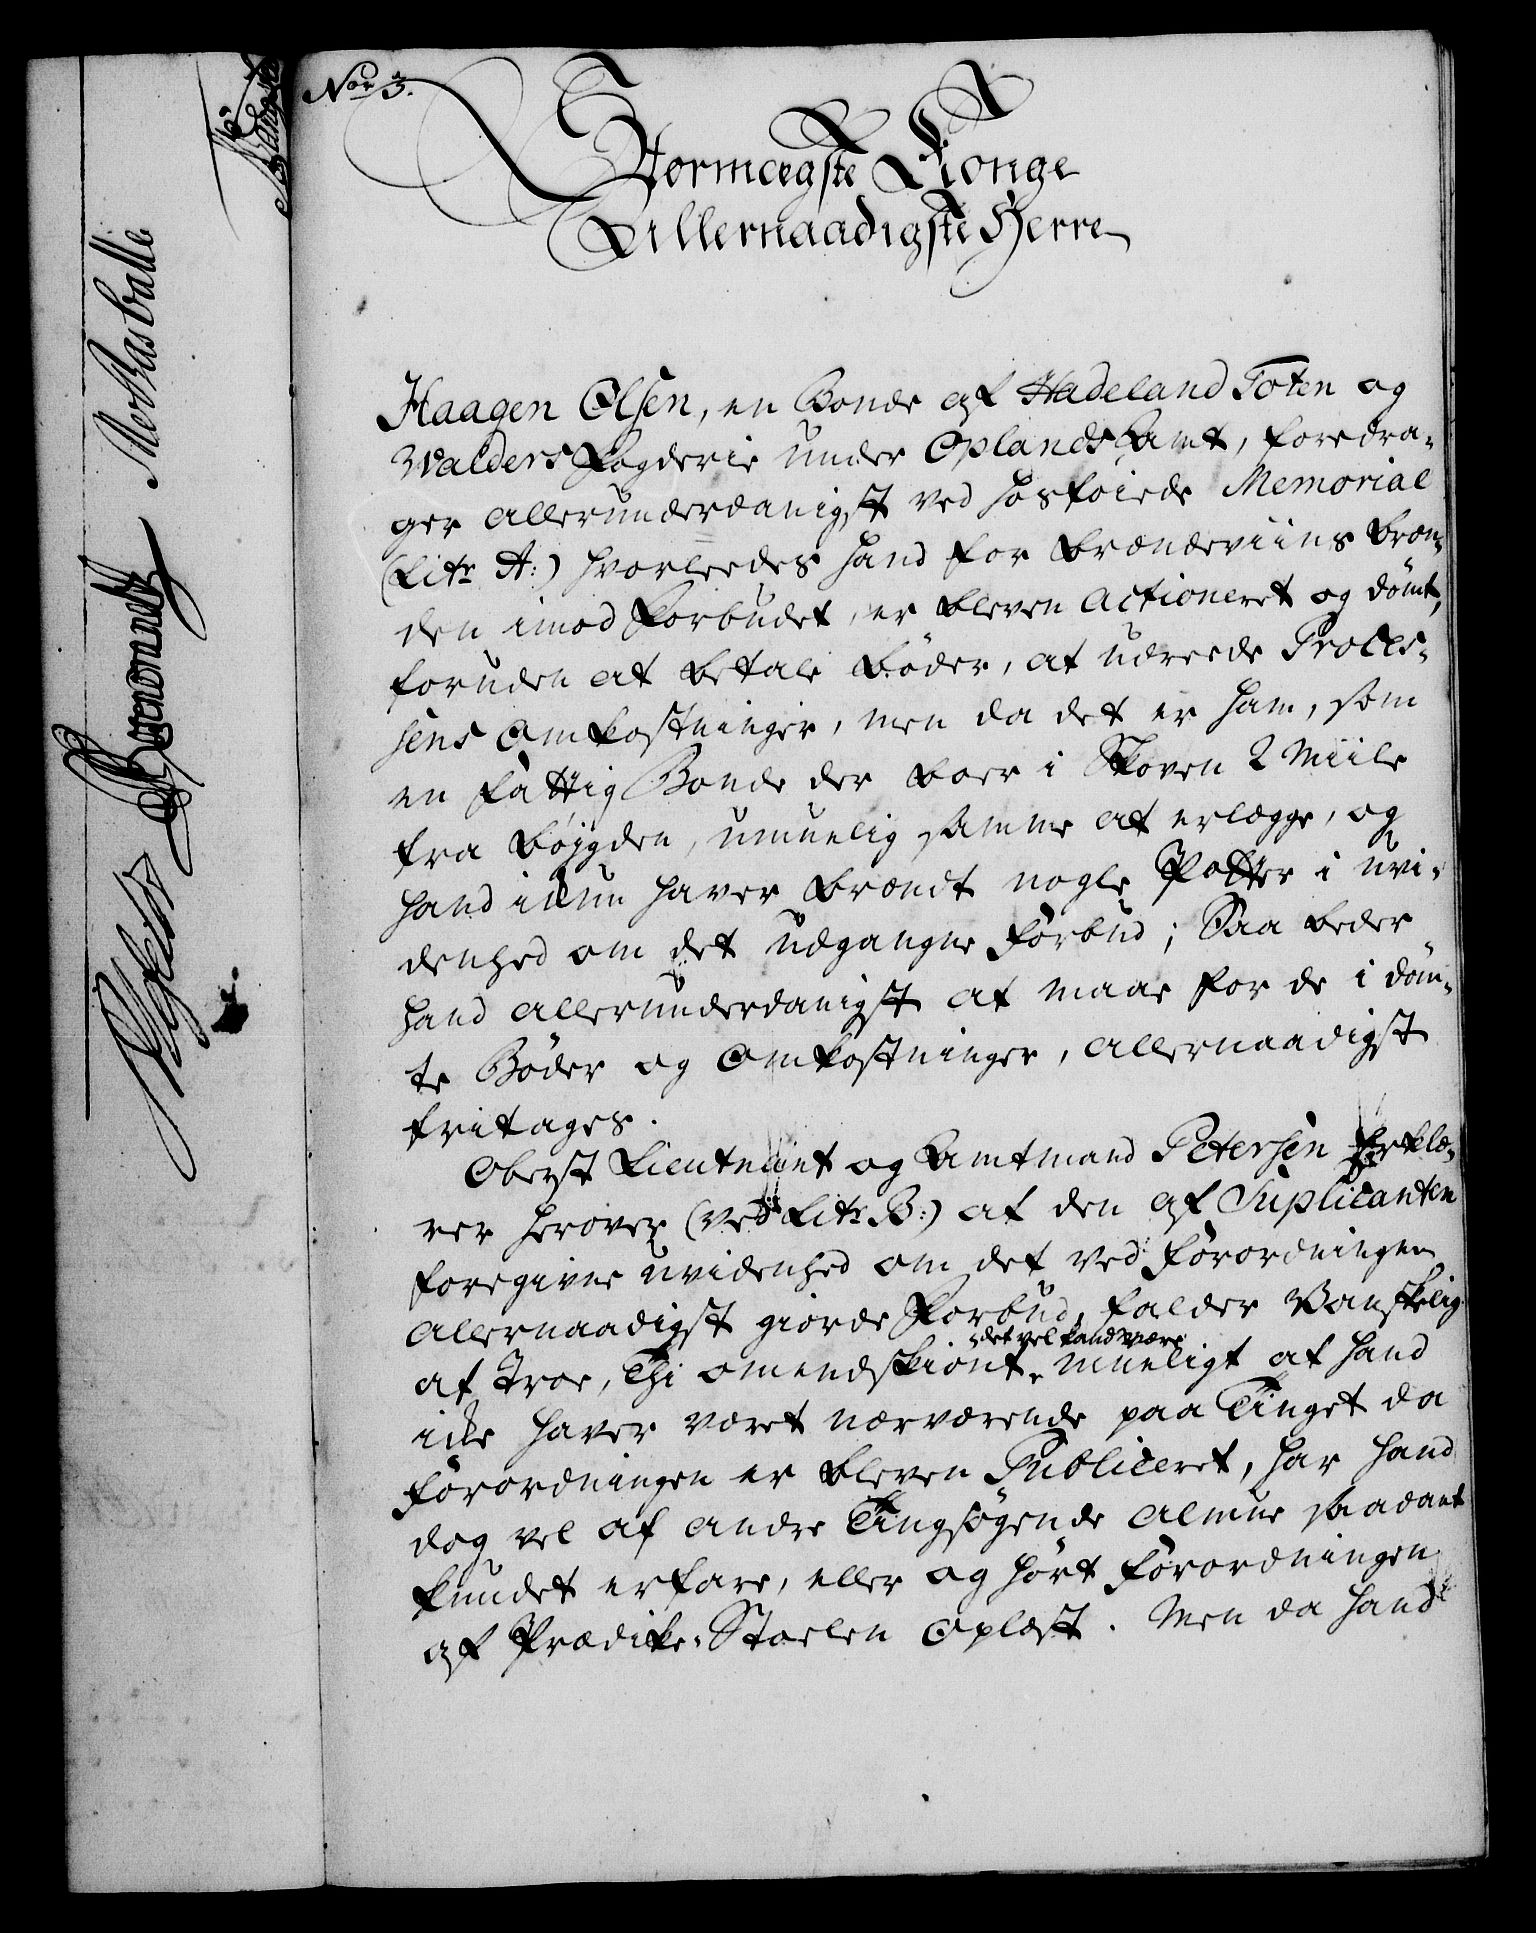 Nor 3.
Stormægste Konge
Allernaadigste Herre
Haagen Olsen, en Bonde af Hadeland Toten og
Walders Fogderie under Oplands Amt, foredra-
ger allerunderdanigst ved hosføiede Memorial
(Litr A:) hvorledes hand for Brændeviins Bræn-
den imod Forbudet, er bleven actioneret og dømt,
foruden at betale Bøder, at udreede Proces-
sens Omkostninger, men da det er ham, som
en fattig Bonde der boer i Skoven 2 Miile
fra Bøygden, umuelig samme at erlægge, og
hand ickun haver brændt nogle Potter i uvi-
denhed om det udgangne Forbud; Saa beder
hand allerunderdanigst at maae for de i døm-
te Bøder og Omkostninger, allernaadigst
fritages.
Oberst Lieutnant og Amtmand Petersen Erklæ-
rer herover (ved Litr B:) at den af Suplicanten
foregivne uvidenhed om det ved Forordningen
allernaadigst giorde Forbud, falder Vanskelig
at troe, Thi omendskiønt
det vel kand være
mueligt at hand
icke haver været nærværende paa Tinget da
Forordningen er bleven Publiceret, har hand
dog vel af andre Tingsøgende Almue saadant
kundet erfare, eller og hørt Forordningen
af Prædike-Stoelen Oplæst. Men da hand